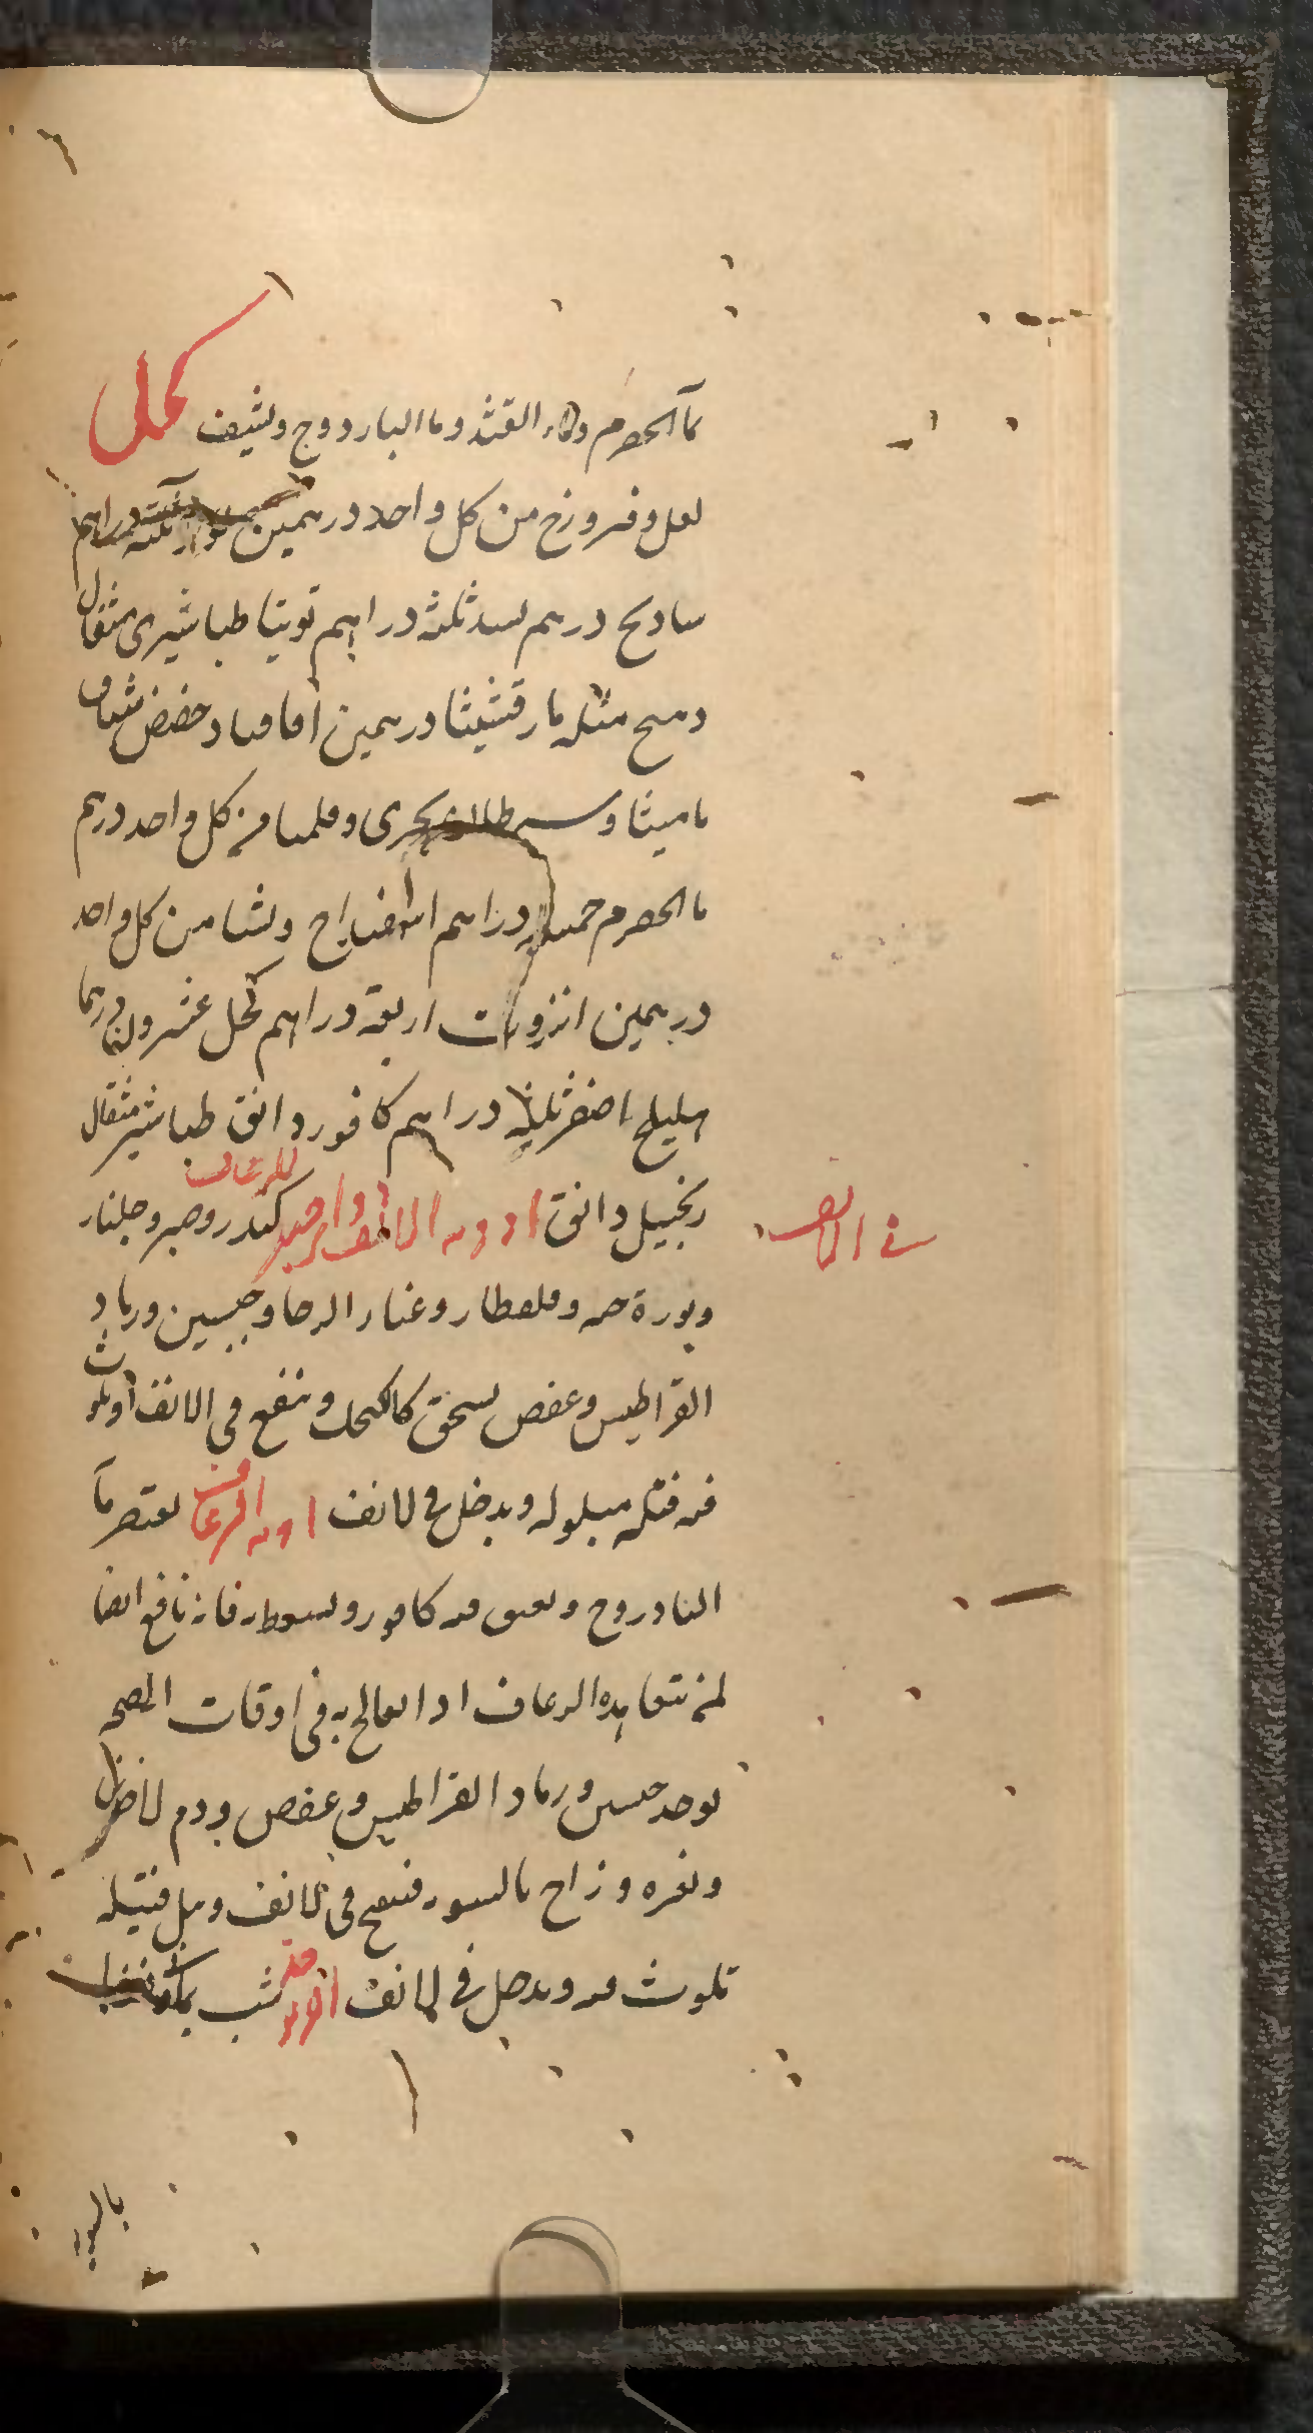 مآ الحصرم وماء القثد وما البادروج ويشيف كحل
لعل وفيروزج من كل واحد درهمين
سادنج درهم بسد ثلثة دراهم توتيا طباشيرى مثقال
دهنج مثله مارقشيثا درهمين اقاقيا وحضض شياف
ماميثا وسرطان بحرى وقليميا من كل واحد درهم
ما الحصرم خمسة دراهم اسفيداج ونشا من كل واحد
درهمين انزروت اربعة دراهم كحل عشرون درهما
هليلج اصفر ثلثة دراهم كافور دانق طباشير مثقال
زنجبيل دانق ادويه الانف للرعاف كندر وصبر وجلنار
فى الانف
ونورة حيه وقلقطار وغبار الرحا وجبسين ورماد
القراطيس وعفص يسحق كالكحل وينفخ فى الانف او يلوث
فيه فتيله مبلوله ويدخل فى الانف للرعاف يعتصر مآ
البادروج ويعتق فيه كافور ويسعط به فانه نافع ايضا
لمن يتعاهده الرعاف اذا يعالج به فى اوقات الصحه
يوخذ جبسين ورماد القراطيس وعفص ودم الاخوين
ونوره وزاج بالسويه فينفخ فى الانف وبل فتيله
تلوث فيه ويدخل فى الانف اخر شب
بالسويه